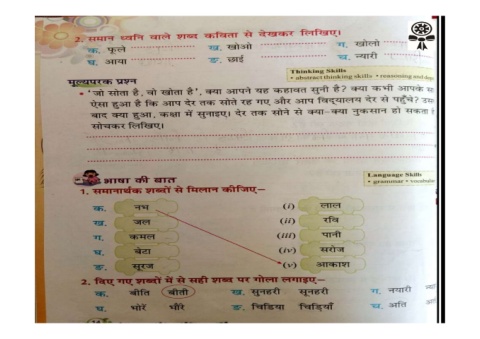 2. समान ध्वनि वाले शब्द कविता से देखकर लिखिए।
क. फूले ख. खोओ ग. खोलो
घ. आया ङ. छाई च. न्यारी
Thinking Skills
मूल्यपरक प्रश्न • abstract thinking skills • reasoning and
• 'जो सोता है, वो खोता है', क्या आपने यह कहावत सुनी है? क्या कभी आपके
ऐसा हुआ है कि आप देर तक सोते रह गए और आप विद्यालय देर से पहुँचे?
बाद क्या हुआ, कक्षा में सुनाइए। देर तक सोने से क्या-क्या नुकसान हो सकता
सोचकर लिखिए।
Language Skills
भाषा की बात • grammar •
1. समानार्थक शब्दों से मिलान कीजिए–
क. नभ (i) लाल
ख. जल (ii) रवि
ग. कमल (iii) पानी
घ. बेटा (iv) सरोज
ङ. सूरज (v) आकाश
2. दिए गए शब्दों में से सही शब्द पर गोला लगाइए–
क. बीति बीती ख. सुनहरी सूनहरी ग. नयारी
घ. भोरें भौंरे ङ. चिडिया चिड़ियाँ च. अति